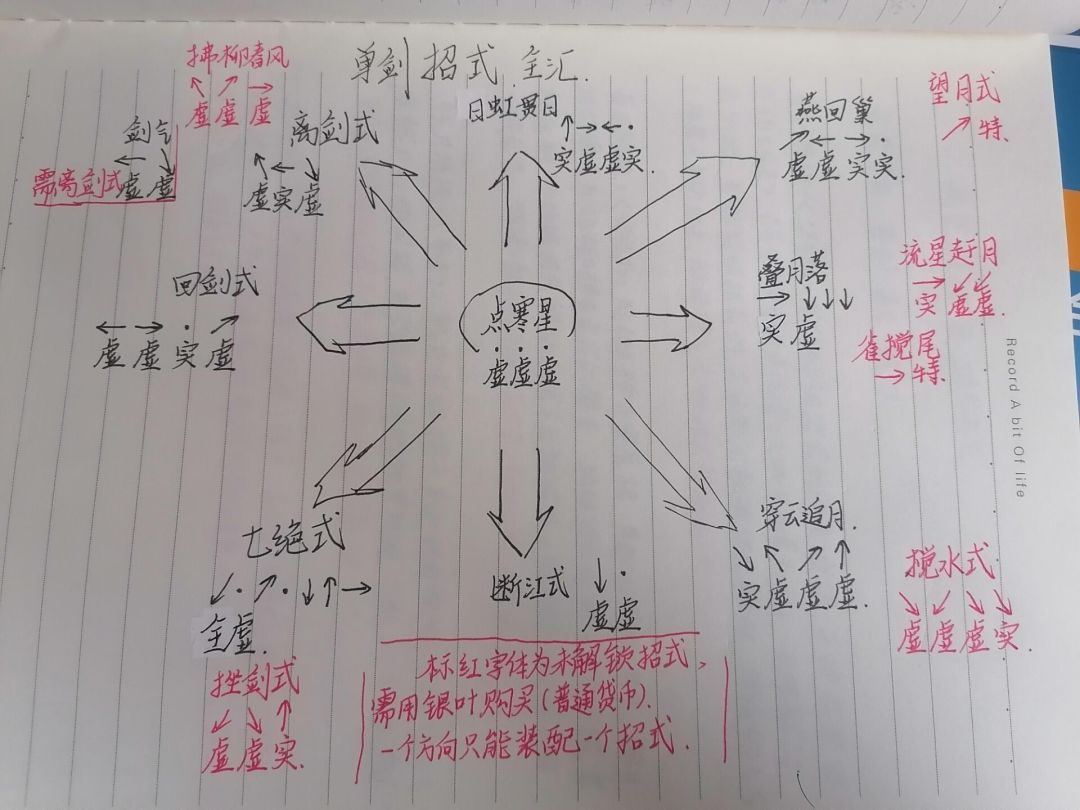 单剑招式全汇.
拂柳春风
↖ ↗ →
虚 虚 虚
剑气
← ↘
需离剑式 虚 虚
离剑式
↖ ← ↘
虚 实 虚
日虹贯日
↑ → ← ·
实 虚 虚 实.
燕回巢
↗ ← → ·
虚 虚 实 实.
望月式
↗ 特.
回剑式
← → · ↗
虚 虚 实 虚
点寒星
· · ·
虚虚虚
叠月落
→ ↓↓↓
实 虚
流星赶月
→ ↙↙
实 虚虚.
雀搅尾
→ 特.
Record A bit Of life
七绝式
↙ · ↗ · ↓ ↑ →
全虚.
挫剑式
↙ ↘ ↑
虚 虚 实.
断江式
↓ ·
虚虚
穿云追月.
↘ ↖ ↗ ↑
实 虚 虚 虚.
搅水式
↘ ↙ ↘ ↘
虚 虚 虚 实.
标红字体为未解锁招式,
需用银叶购买(普通货币).
一个方向只能装配一个招式.